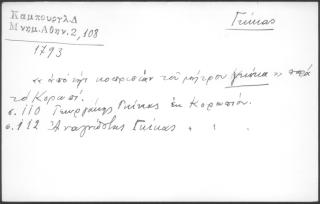 Καμπούργλ. Δ
Μνημ. Αθην. 2, 108
Γκίκας
1793
« ἀπὸ τὴν κοπρισιὰν τοῦ μήτρου Γκίκα » παρὰ
τὸ Κορωπί.
σ. 110 Γεωργάκης Γκίκας ἐκ Κορωπιοῦ.
σ. 112 Ἀναγνώστης Γκίκας " " "